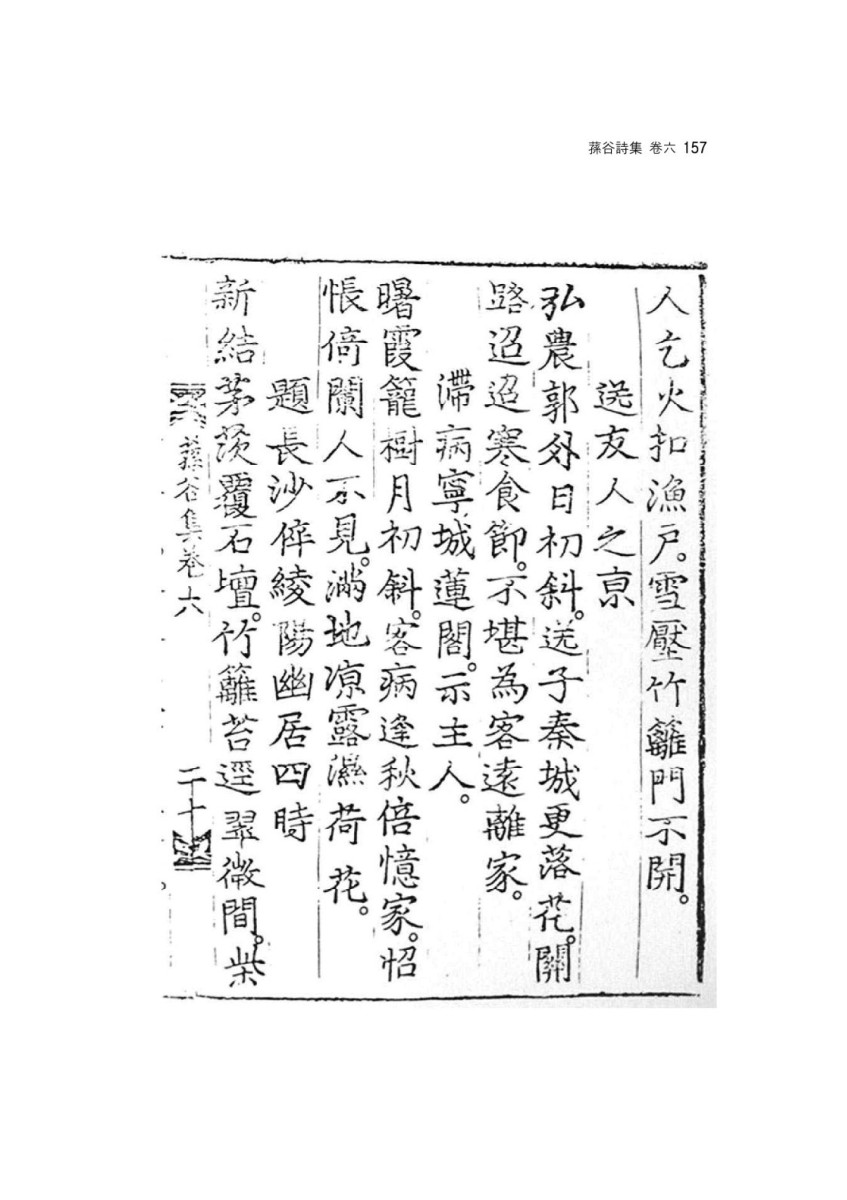 蓀谷詩集 卷六 157
人乞火扣漁戶。雪壓竹籬門不開。
送友人之京
弘農郭外日初斜。送子秦城更落花。關
路迢迢寒食節。不堪為客遠離家。
滯病寧城蓮閣。示主人。
曙霞籠樹月初斜。客病逢秋倍憶家。怊
悵倚闌人不見。滿地凉露濕荷花。
題長沙倅綾陽幽居四時
新結茅茨覆石壇。竹籬苔逕翠微間。柴
蓀谷集卷六 二十